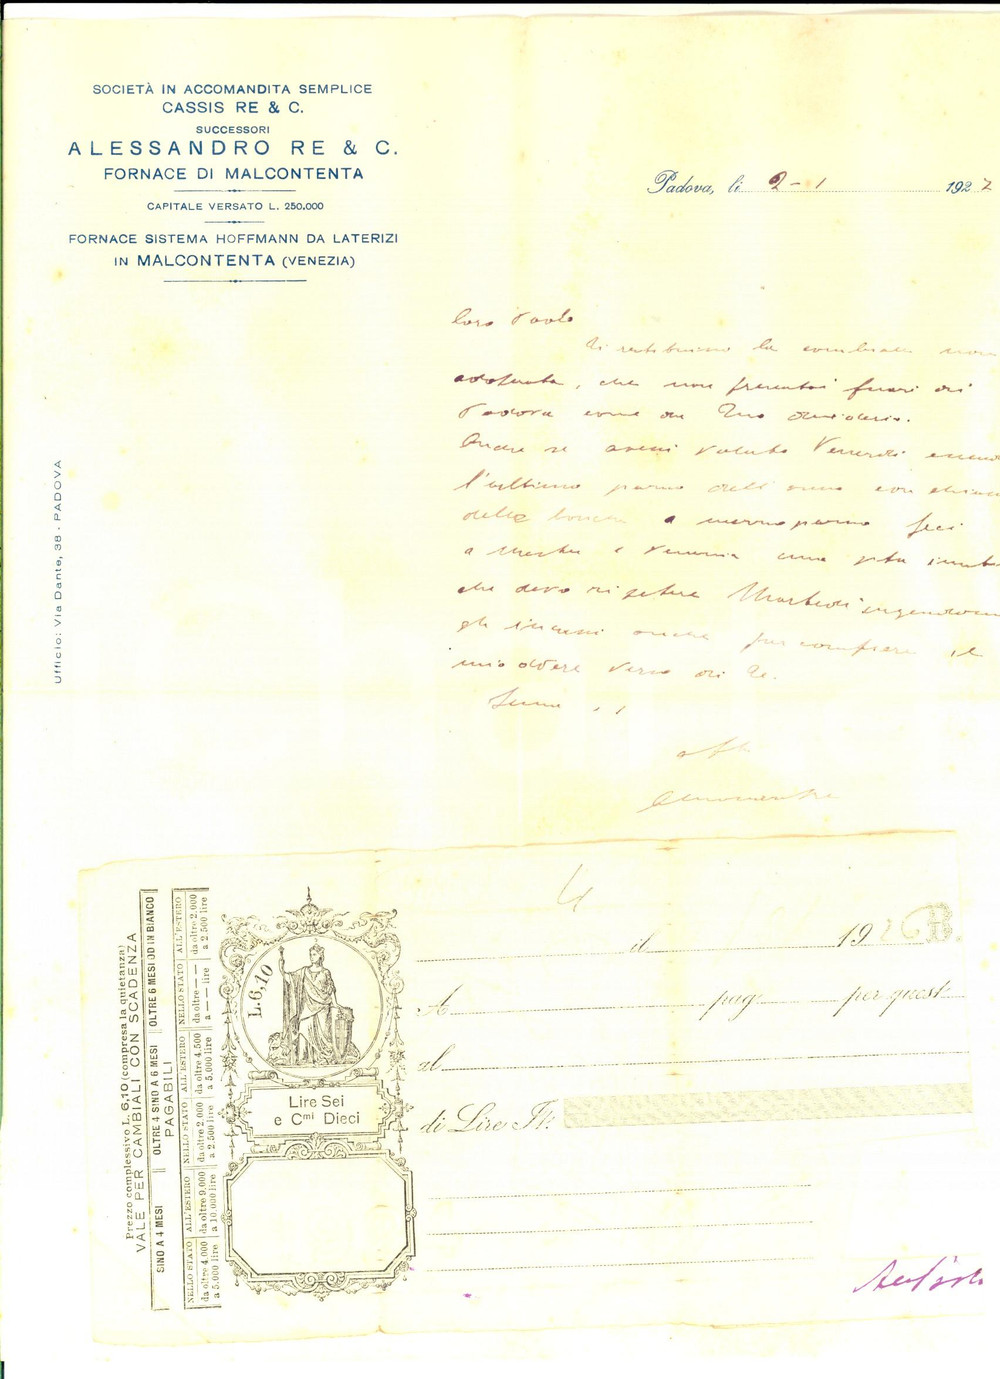 SOCIETÀ IN ACCOMANDITA SEMPLICE
CASSIS RE & C.
SUCCESSORI
ALESSANDRO RE & C.
FORNACE DI MALCONTENTA
CAPITALE VERSATO L. 250.000
FORNACE SISTEMA HOFFMANN DA LATERIZI
IN MALCONTENTA (VENEZIA)
Padova, li 2-1 1927
Ufficio: Via Dante, 38 - PADOVA
Caro Paolo
Ti restituisco la cambiale non
adoperata, che non presentai fuori di
Padova come da Tuo desiderio.
Anche se avessi voluto Venerdì
l'ultimo dell'anno con
delle banche a feci
a Mestre e Venezia una gita
che devo ripetere Martedì
gli incassi anche per compiere il
mio dovere verso di Te.
Prezzo complessivo L. 6,10 (compresa la quietanza)
VALE PER CAMBIALI CON SCADENZA
SINO A 4 MESI
OLTRE 4 SINO A 6 MESI
OLTRE 6 MESI OD IN BIANCO
PAGABILI
NELLO STATO
ALL'ESTERO
NELLO STATO
ALL'ESTERO
NELLO STATO
ALL'ESTERO
da oltre 4.000
a 5.000 lire
da oltre 9.000
a 10.000 lire
da oltre 2.000
a 2.500 lire
da oltre 4.500
a 5.000 lire
da oltre ——
a —— lire
da oltre 2.000
a 2.500 lire
L.6,10
Lire Sei
e Cmi Dieci
il 1926
A pag per quest
al
di Lire It: